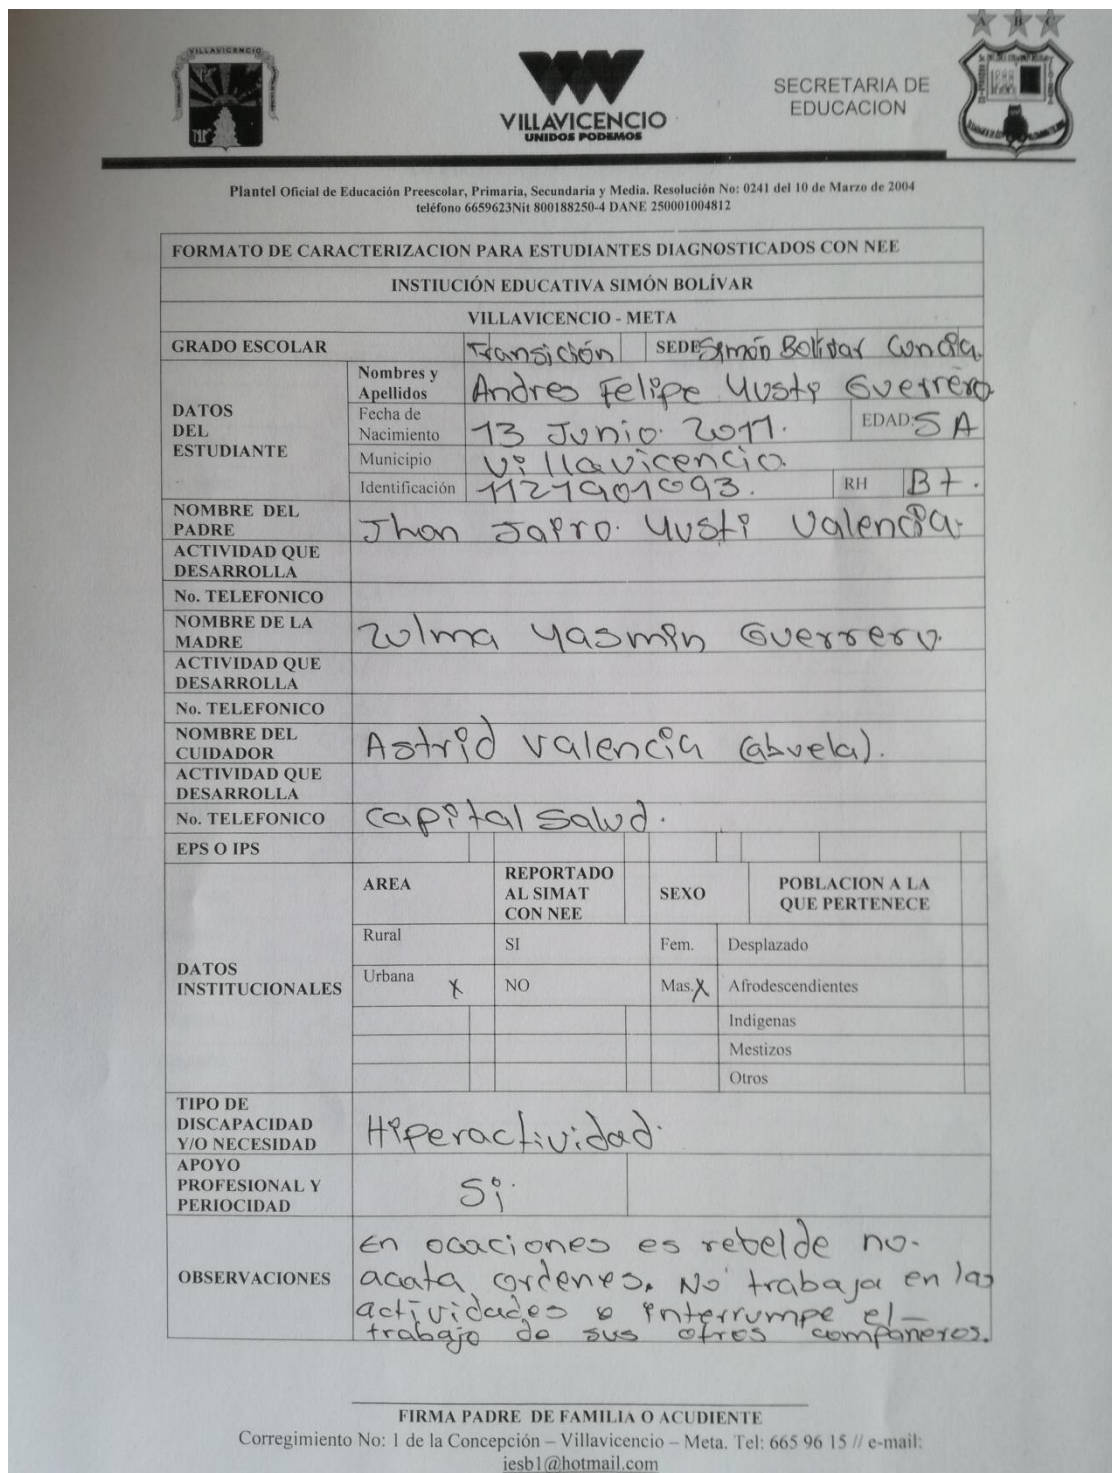 A B C
VILLAVICENCIO
VILLAVICENCIO
UNIDOS PODEMOS
SECRETARIA DE
EDUCACION
Plantel Oficial de Educación Preescolar, Primaria, Secundaria y Media. Resolución No: 0241 del 10 de Marzo de 2004
teléfono 6659623Nit 800188250-4 DANE 250001004812
FORMATO DE CARACTERIZACION PARA ESTUDIANTES DIAGNOSTICADOS CON NEE
INSTIUCIÓN EDUCATIVA SIMÓN BOLÍVAR
VILLAVICENCIO - META
GRADO ESCOLAR Transición SEDE Simón Bolivar Concha.
DATOS
DEL
ESTUDIANTE
Nombres y
Apellidos Andres Felipe Yusti Guerrero
Fecha de
Nacimiento 13 Junio. 2011. EDAD: 5 A
Municipio Villavicencio.
Identificación 1121901093. RH B+.
NOMBRE DEL
PADRE Jhon Jairo. Yusti Valencia.
ACTIVIDAD QUE
DESARROLLA
No. TELEFONICO
NOMBRE DE LA
MADRE Zulma Yasmin Guerrero.
ACTIVIDAD QUE
DESARROLLA
No. TELEFONICO
NOMBRE DEL
CUIDADOR Astrid Valencia (abuela).
ACTIVIDAD QUE
DESARROLLA
No. TELEFONICO Capital Salud.
EPS O IPS
DATOS
INSTITUCIONALES
AREA
REPORTADO
AL SIMAT
CON NEE
SEXO
POBLACION A LA
QUE PERTENECE
Rural SI Fem. Desplazado
Urbana X NO Mas. X Afrodescendientes
Indigenas
Mestizos
Otros
TIPO DE
DISCAPACIDAD
Y/O NECESIDAD Hiperactividad.
APOYO
PROFESIONAL Y
PERIOCIDAD Si.
OBSERVACIONES
En ocaciones es rebelde no.
acata ordenes. No trabaja en las
actividades e interrumpe el
trabajo de sus otros compañeros.
FIRMA PADRE DE FAMILIA O ACUDIENTE
Corregimiento No: 1 de la Concepción – Villavicencio – Meta. Tel: 665 96 15 // e-mail:
iesb1@hotmail.com